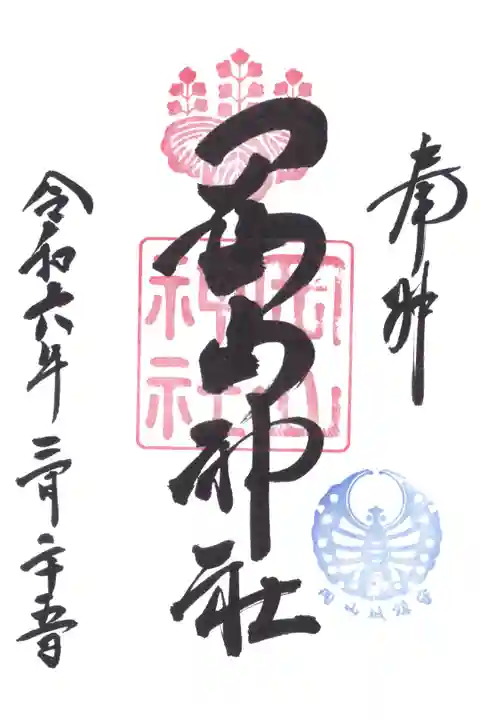 奉拝
岡山神社
岡山
神社
岡山城鎮守
令和六年三月二十五日